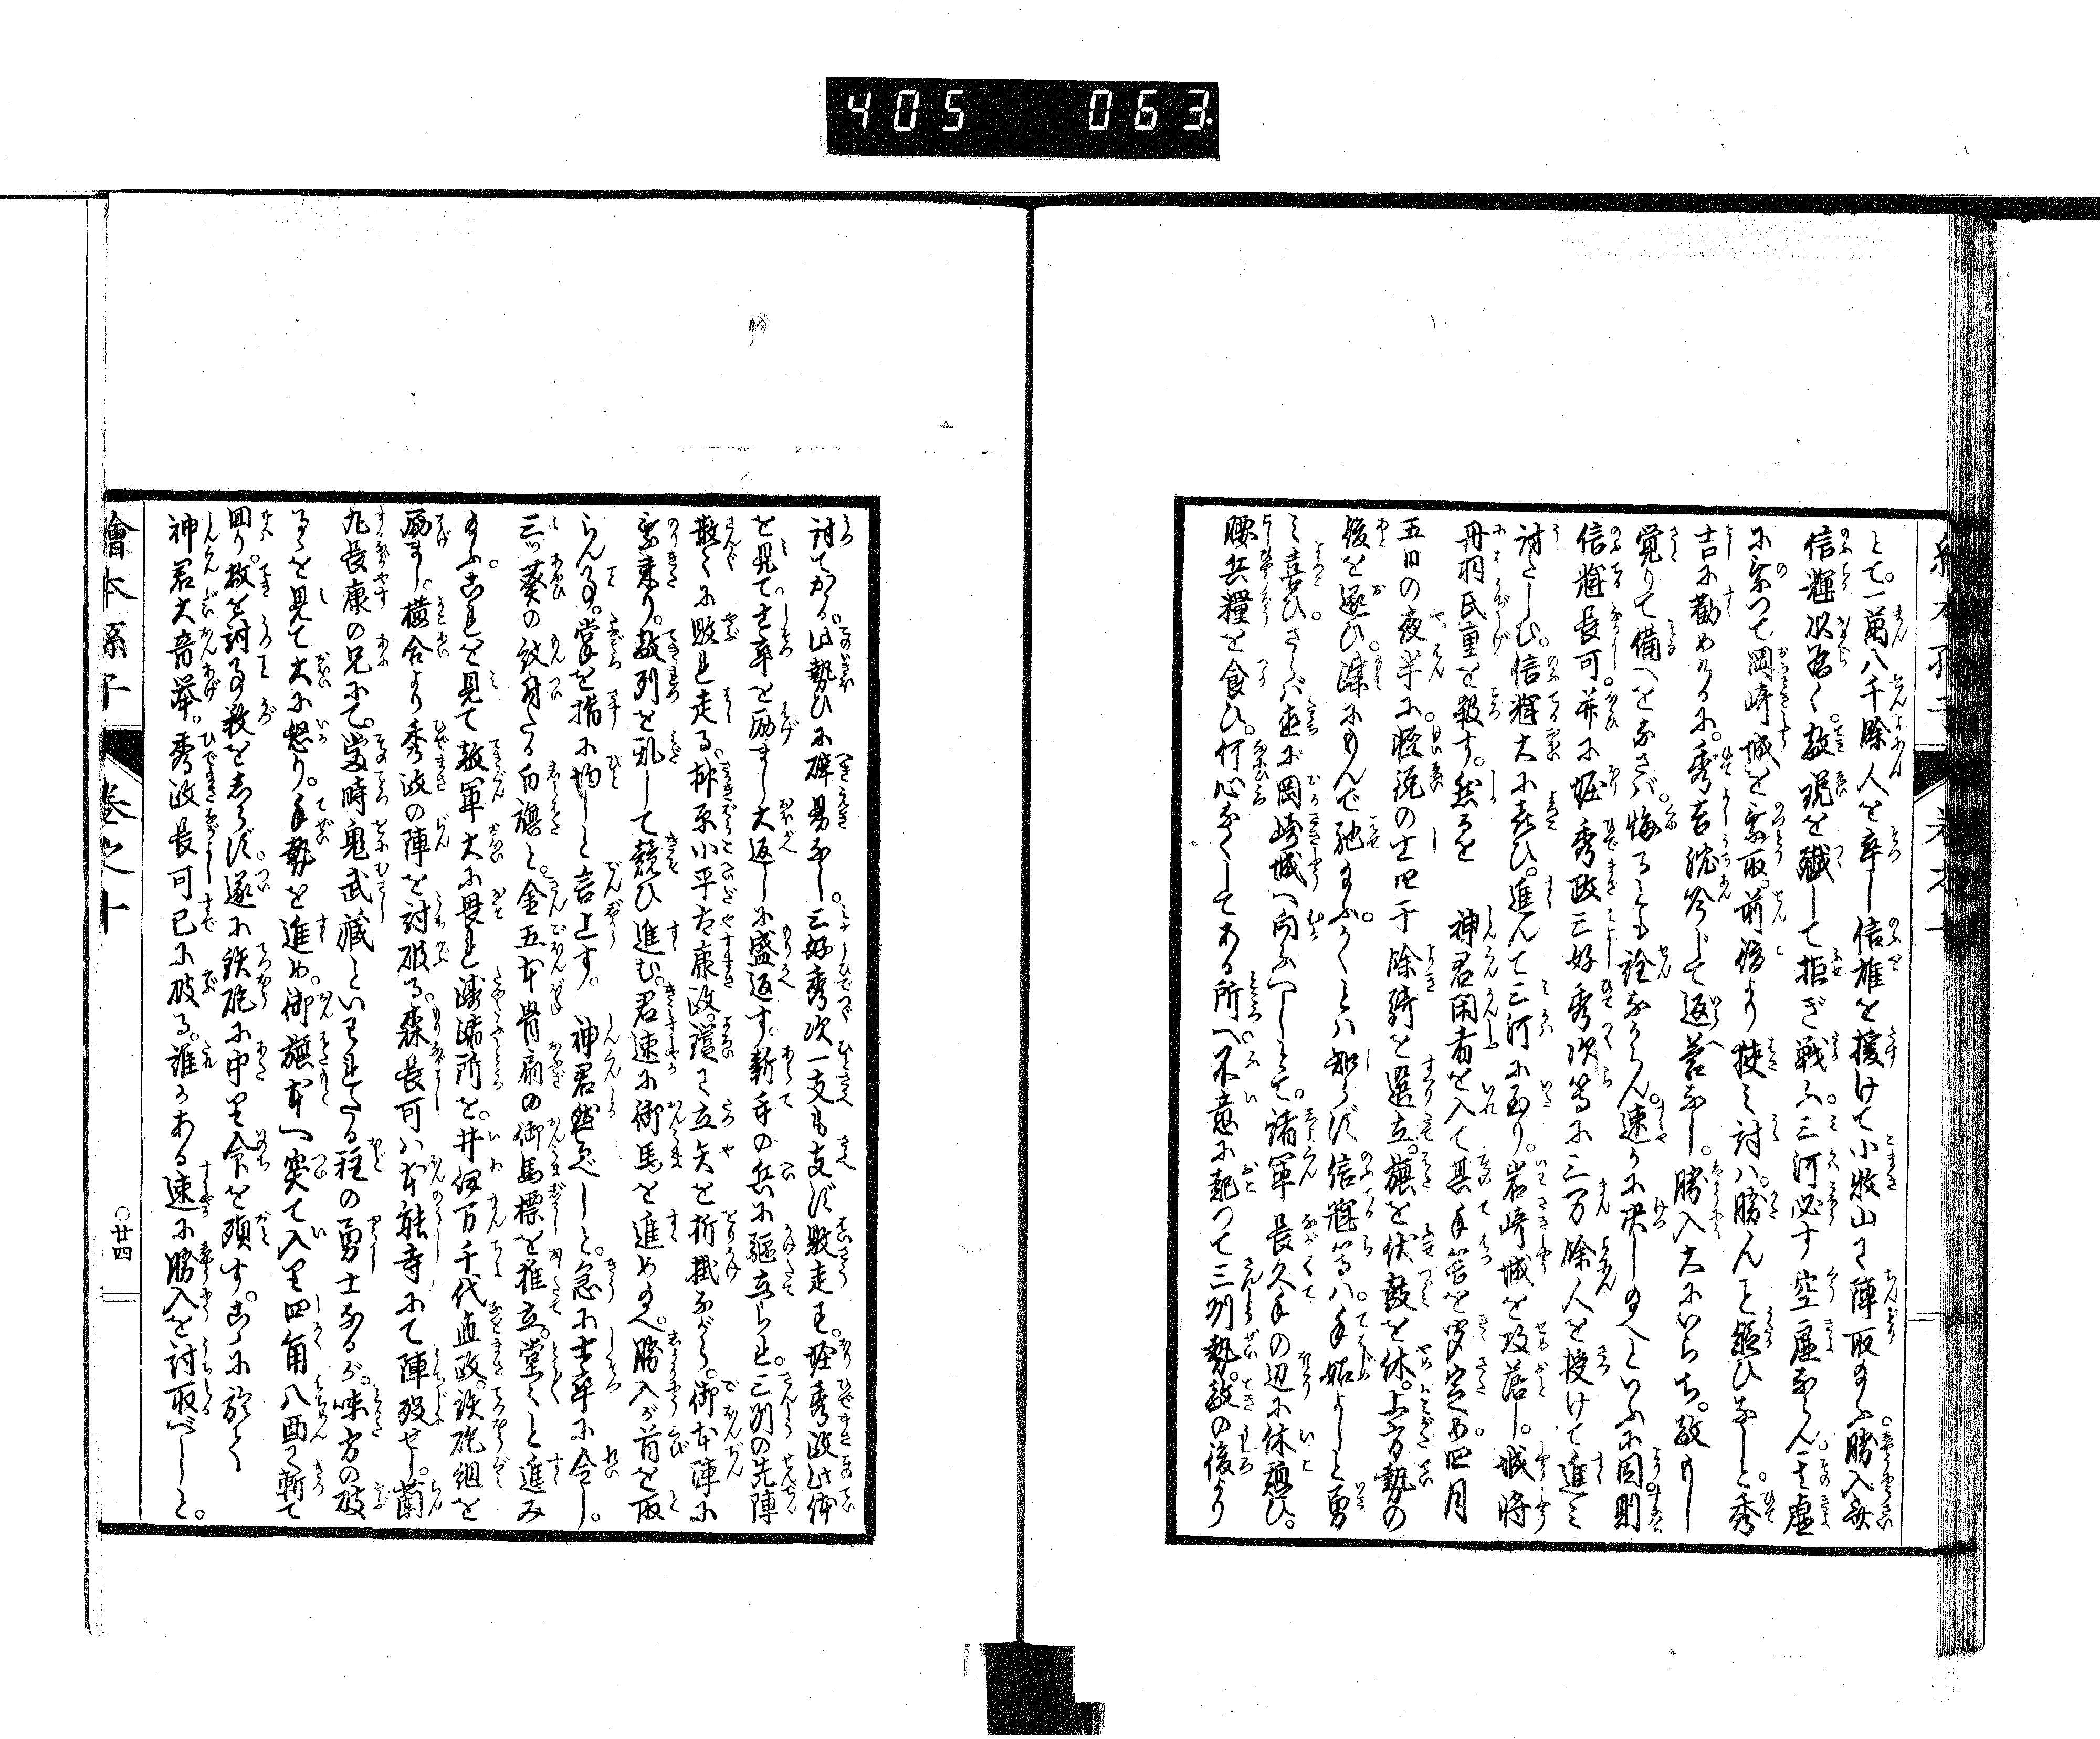 405 063
とて。一萬八千餘人を卒し信雄を援けて小牧山に陣取玉ふ。勝入斎
信輝以為く。敵現を殲して拒ぎ戦ふ。三河必す空虚ならん。其虚
に乗つて岡崎城を乗取。前後より狭み討ハ。勝んと疑ひなしと。秀
吉に勧めけるに。秀吉沈吟じて返答なし。勝入大にいらち。敵もし
覚りて備へをなさバ。悔るとも詮なからん。速かに決し玉へといふに因則
信輝長可。并に堀秀政三好秀次等に三万餘人を授けて進み
討たしむ。信輝大に喜び。進んで三河に至り。岩崎城を攻落し。城将
丹羽氏重を殺す。然るを　神君間者を入て其手筈を聞定め。四月
五日の夜半に軽鋭の士四千餘騎を選立。旗を伏鼓を休。上方勢の
後を逐ひ。潜にもんで馳玉ふ。かくとハ知らず信輝等ハ。手始よしと勇
み喜ひ。さらバ直に岡崎城へ向ふべしとて。諸軍長久手の辺に休憩ひ。
腰兵糧を食ひ。何心なくしてある所へ。不意に起つて三州勢。敵の後より
討てかゝる。此勢ひに辟易なし。三好秀次一支も支ず敗走す。堀秀政此体
を見て。士卒を励まし大返しに盛返す。新手の兵に駆立られ。三州の先陣
散々に敗れ走る。榊原小平太康政。鎧に立矢を折掛ながら。御本陣に
乗来り。敵列を乱して競ひ進む。君速に御馬を進め玉へ。勝入が首を取
らん事。掌を指に均しと言上す。　神君然るべしと。急に士卒に令し。
三ツ葵の紋付たる白旗と。金五本骨扇の御馬標を推立。堂々と進み
玉ふ。これを見て敵軍大に畏れ漂ふ所を。井伊万千代直政。鉄砲組を
励まし。横合より秀政の陣を討破る。森長可ハ本能寺にて陣歿せし。蘭
丸長康の兄にて。當時鬼武蔵といはれたる程の勇士なるが。味方の破
るゝを見て大に怒り。手勢を進め。御旗本へ突て入り四角八面に斬て
回り。敵を討事数をしらず。遂に鉄砲に中り命を殞す。こゝに於て
神君大音挙。秀政長可已に破る。誰かある速に勝入を討取べしと。
繪本孫子　巻之十　〇廿四